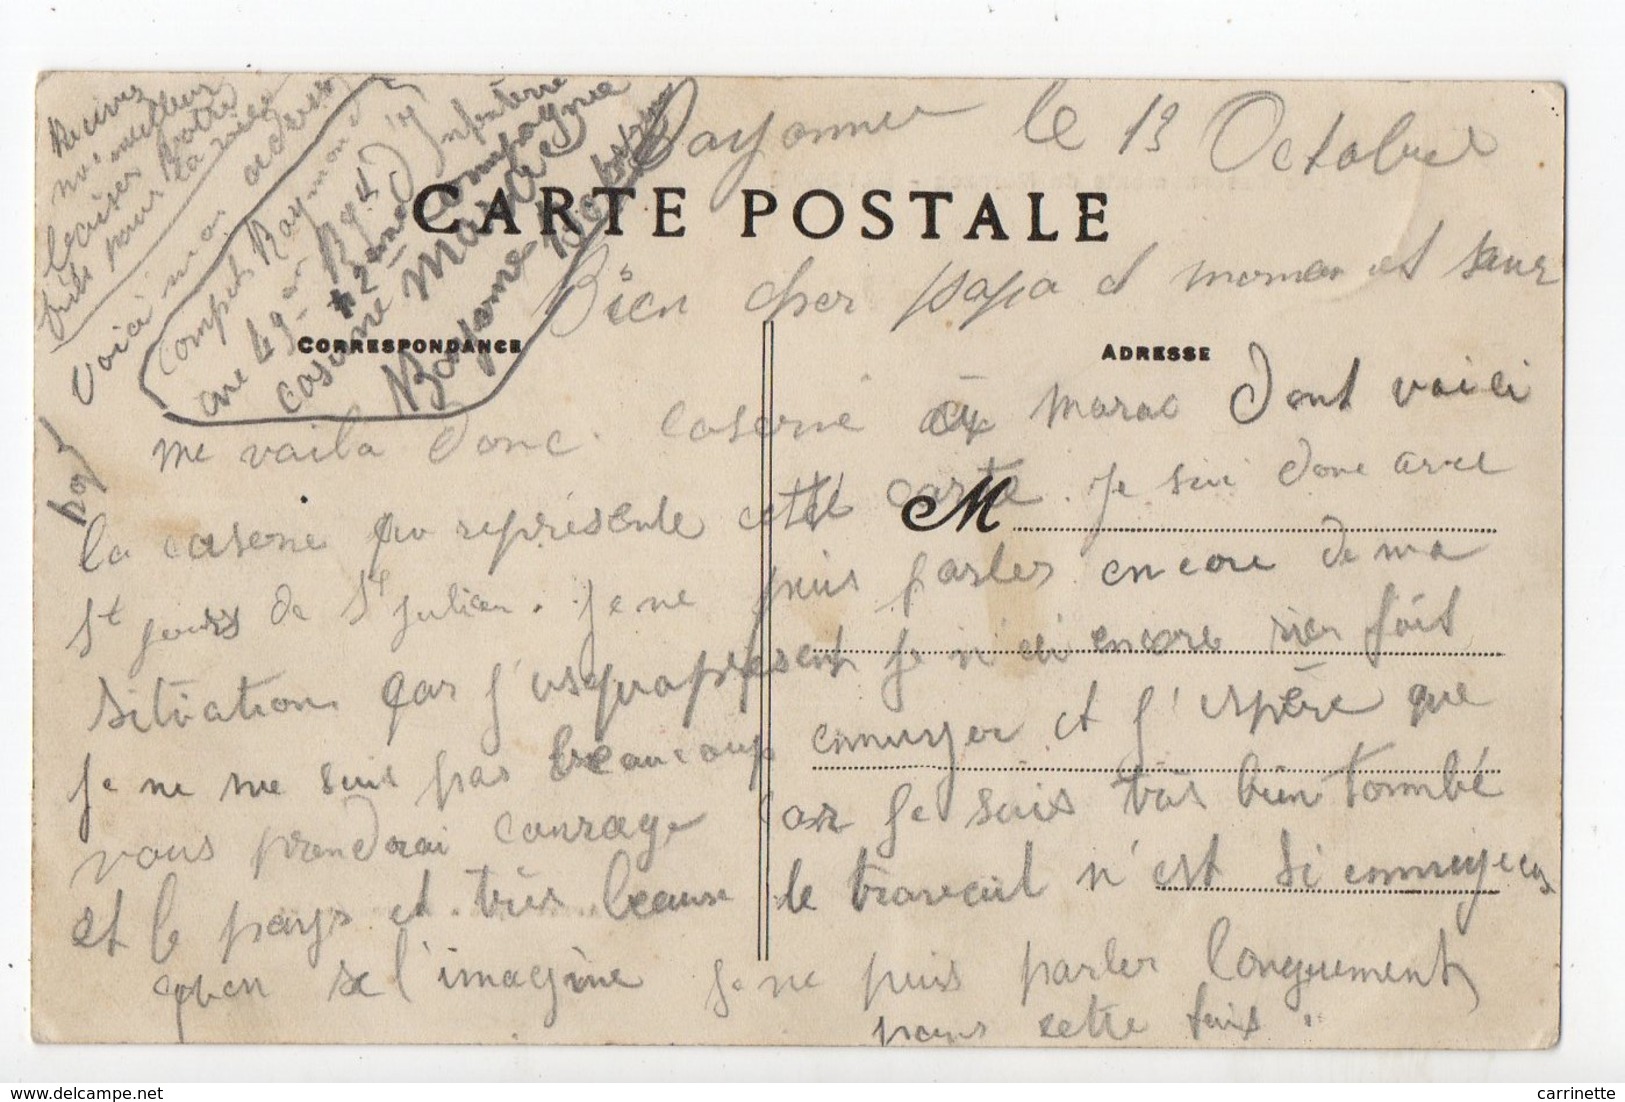 Bayonne le 13 Octobre
CARTE POSTALE
Bien cher papa et moman et
CORRESPONDANCE
ADRESSE
me voila donc caserne marac Dont voici
la caserne représente cette carte. Je sui donc avec
M
St jours de St Julien. Je ne puis parler encore de ma
situation car j'usquaprésent je n'ai encore rien fait
je ne me suis pas beaucoup ennuyer et j'espère que
vous prendrai courage car je suis très bien tombé
et le pays et très beaux le travail n'est si ennuyeux
qu'en se l'imagine je ne puis parler longuement
pour cette fois.
Recivez
meilleur
baiser Votre
fils pour la vie
Voici mon adresse
Raymond
au 49 Infanterie
12 eme Compagnie
caserne Marac
Bayonne
carrinette